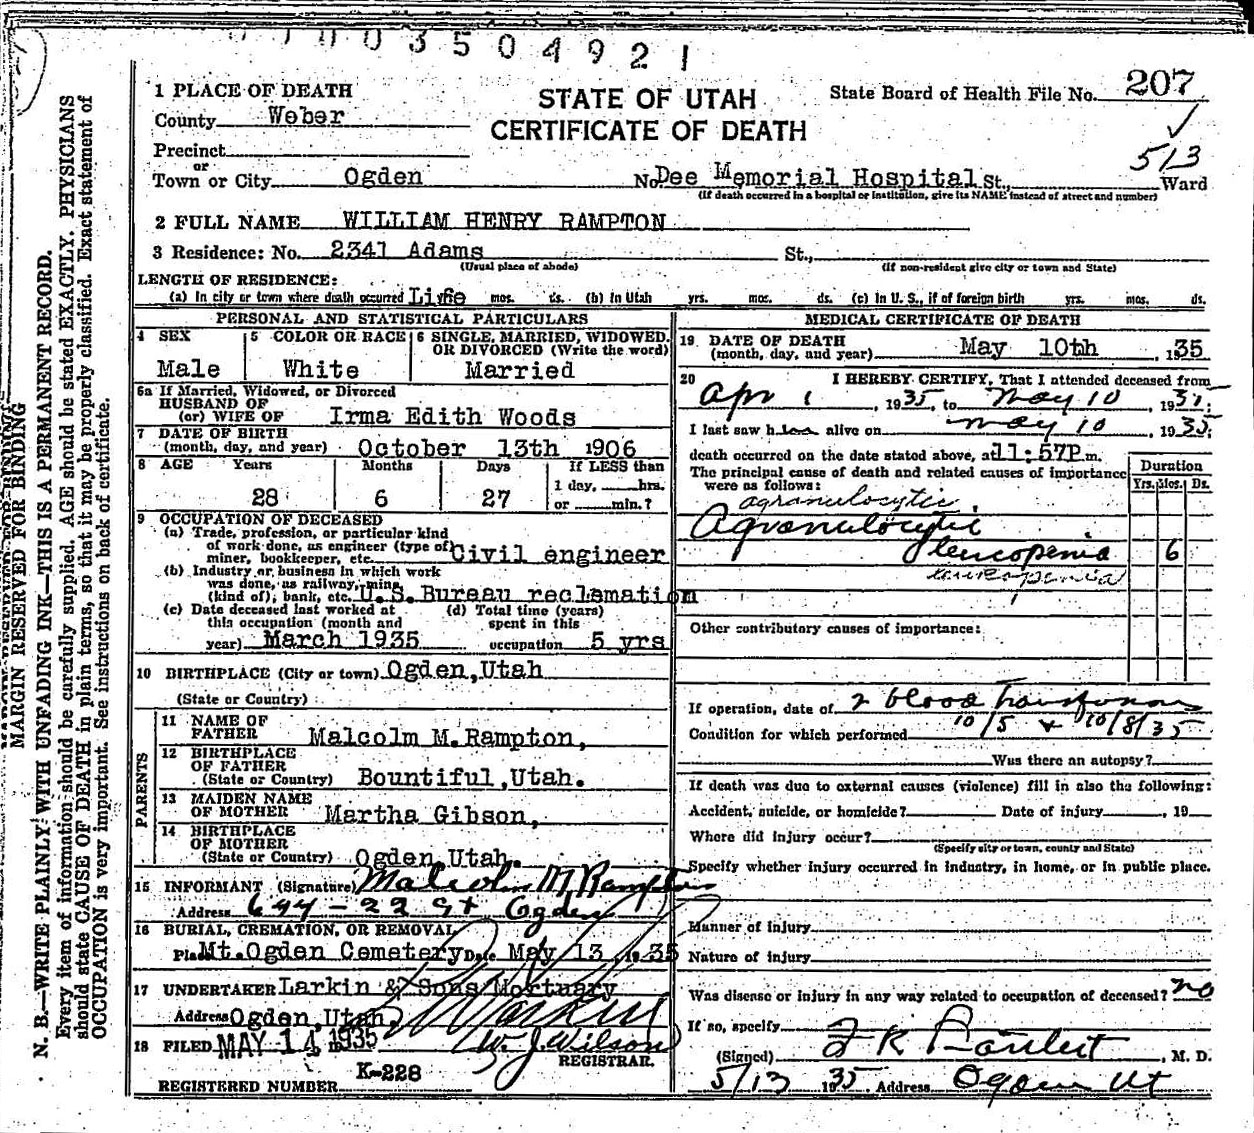 3504921
1 PLACE OF DEATH
STATE OF UTAH
CERTIFICATE OF DEATH
State Board of Health File No. 207
County Weber
Precinct
or
Town or City Ogden No. Dee Memorial Hospital St., Ward
513
(If death occurred in a hospital or institution, give its NAME instead of street and number)
2 FULL NAME WILLIAM HENRY RAMPTON
3 Residence: No. 2341 Adams St.,
(Usual place of abode) (If non-resident give city or town and State)
LENGTH OF RESIDENCE:
(a) In city or town where death occurred Life mos. ds. (b) In Utah yrs. mos. ds. (c) In U. S., if of foreign birth yrs. mos. ds.
PERSONAL AND STATISTICAL PARTICULARS
4 SEX 5 COLOR OR RACE 6 SINGLE, MARRIED, WIDOWED, OR DIVORCED (Write the word)
Male White Married
6a If Married, Widowed, or Divorced
HUSBAND OF
(or) WIFE OF Irma Edith Woods
7 DATE OF BIRTH
(month, day, and year) October 13th 1906
8 AGE Years Months Days If LESS than
1 day, hrs.
28 6 27 or min.?
9 OCCUPATION OF DECEASED
(a) Trade, profession, or particular kind
of work done, as engineer (type of)
miner, bookkeeper, etc. Civil engineer
(b) Industry or business in which work
was done, as railway, mine
(kind of), bank, etc. U.S. Bureau reclamation
(c) Date deceased last worked at (d) Total time (years)
this occupation (month and spent in this
year) March 1935 occupation 5 yrs
10 BIRTHPLACE (City or town) Ogden, Utah
(State or Country)
PARENTS
11 NAME OF
FATHER Malcolm M. Rampton,
12 BIRTHPLACE
OF FATHER
(State or Country) Bountiful, Utah.
13 MAIDEN NAME
OF MOTHER Martha Gibson,
14 BIRTHPLACE
OF MOTHER
(State or Country) Ogden, Utah.
15 INFORMANT (Signature) Malcolm M Rampton
Address 644 - 22 St Ogden
16 BURIAL, CREMATION, OR REMOVAL
Place Mt. Ogden Cemetery Date May 13 1935
17 UNDERTAKER Larkin & Sons Mortuary
Address Ogden, Utah
18 FILED MAY 14 1935 W. J. Wilson
REGISTRAR.
K-228
REGISTERED NUMBER
MEDICAL CERTIFICATE OF DEATH
19 DATE OF DEATH
(month, day, and year) May 10th, 1935
20 I HEREBY CERTIFY, That I attended deceased from
Apr 1, 1935, to May 10, 1935.
I last saw him alive on May 10, 1935.
death occurred on the date stated above, at 11:57P.m.
The principal cause of death and related causes of importance
were as follows:
Duration
Yrs. Mos. Ds.
agranulocytic
Agranulocytic
leucopenia 6
leucopenia
Other contributory causes of importance:
If operation, date of 2 blood Transfusions
10/5 & 10/8/35
Condition for which performed
Was there an autopsy?
If death was due to external causes (violence) fill in also the following:
Accident, suicide, or homicide? Date of injury , 19
Where did injury occur?
(Specify city or town, county and State)
Specify whether injury occurred in industry, in home, or in public place.
Manner of injury
Nature of injury
Was disease or injury in any way related to occupation of deceased? no
If so, specify
(Signed) , M. D.
5/13 1935 Address Ogden Ut
MARGIN RESERVED FOR BINDING
N. B.—WRITE PLAINLY WITH UNFADING INK—THIS IS A PERMANENT RECORD.
Every item of information should be carefully supplied. AGE should be stated EXACTLY. PHYSICIANS
should state CAUSE OF DEATH in plain terms, so that it may be properly classified. Exact statement of
OCCUPATION is very important. See instructions on back of certificate.